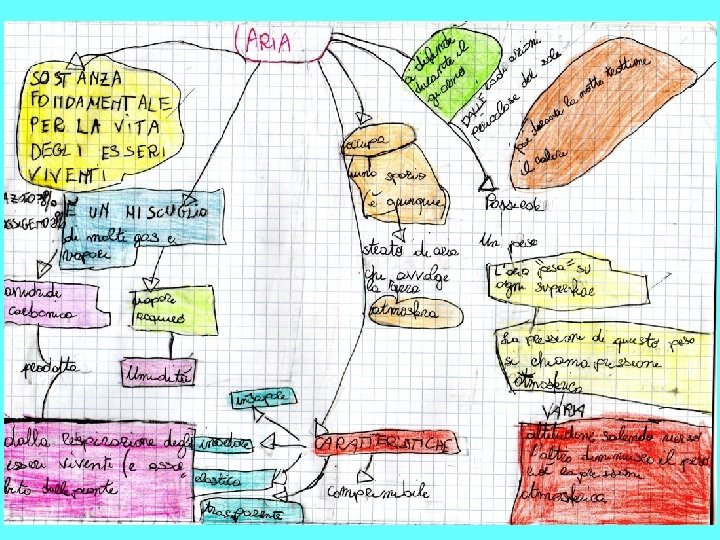 ARIA
SOSTANZA
FONDAMENTALE
PER LA VITA
DEGLI ESSERI
VIVENTI
ci difende
durante il
giorno
DALLE radiazioni
pericolose del sole
per durante la notte trattiene
il calore
occupa
uno spazio
(è ovunque
È UN MISCUGLIO
di molti gas e
vapori
anidride
carbonica
vapore
acqueo
prodotta
Umidità
strato di aria
che avvolge
la terra
atmosfera
Possiede
Un peso
L'aria "pesa" su
ogni superficie
La pressione di questo peso
si chiama pressione
atmosferica
VARIA
altitudine salendo verso
l'alto diminuisce il peso
ed la pressione
atmosferica
dalla respirazione degli
esseri viventi (e assor
bita dalle piante
insapore
inodore
elastica
trasparente
CARATTERISTICHE
comprimibile